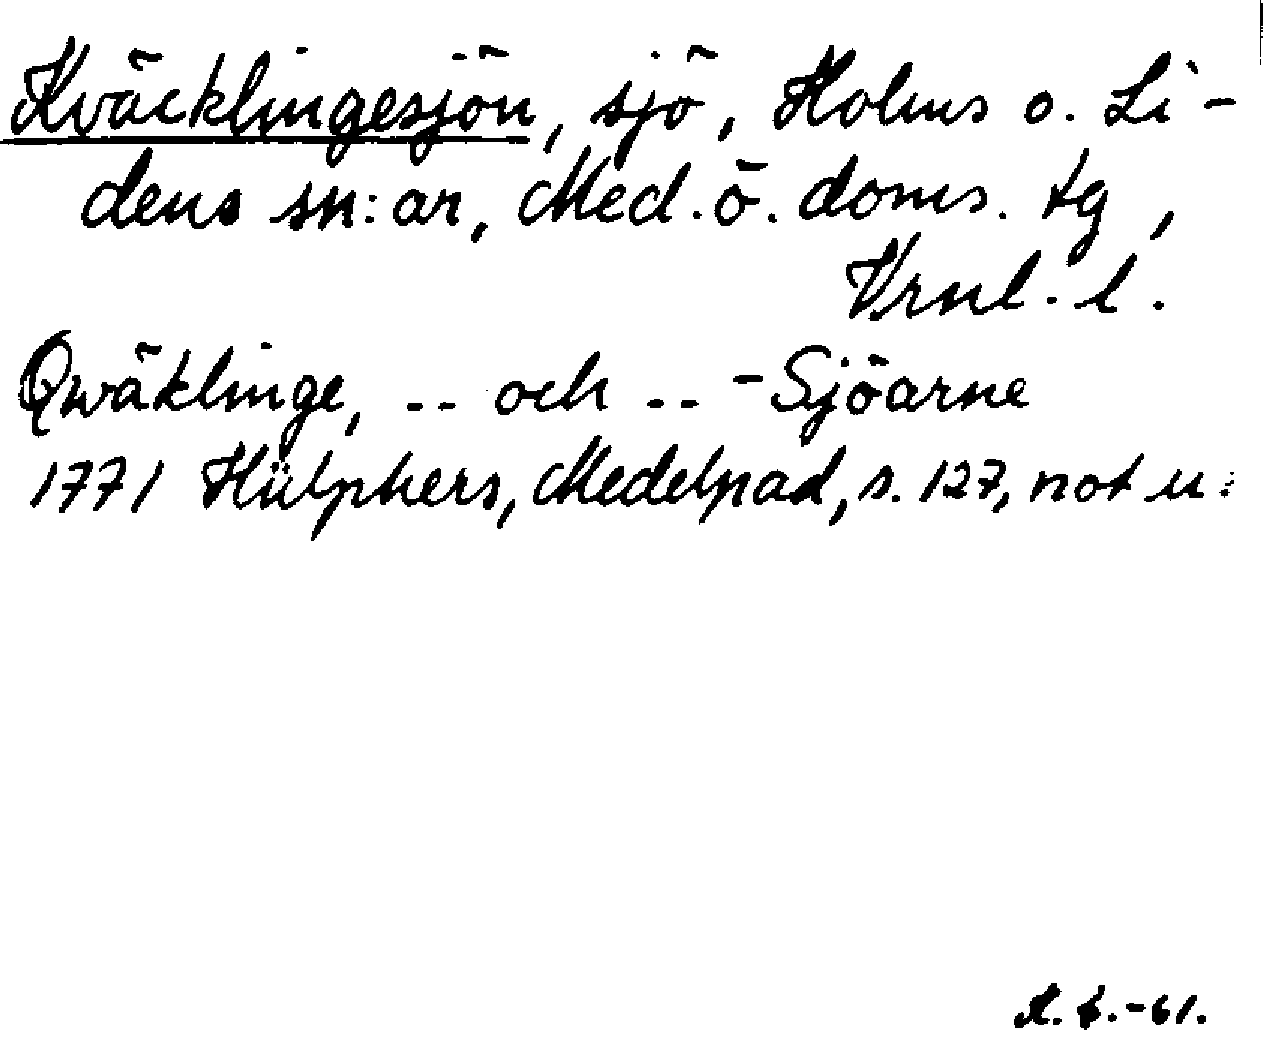 Kväcklingesjön, sjö, Holms o. Li-
dens sn:ar, Med. ö. doms. tg,
Vrnl. l.
Qwäklinge, -- och -- -Sjöarne
1771 Hülphers, Medelpad, s. 127, not u.
-61.